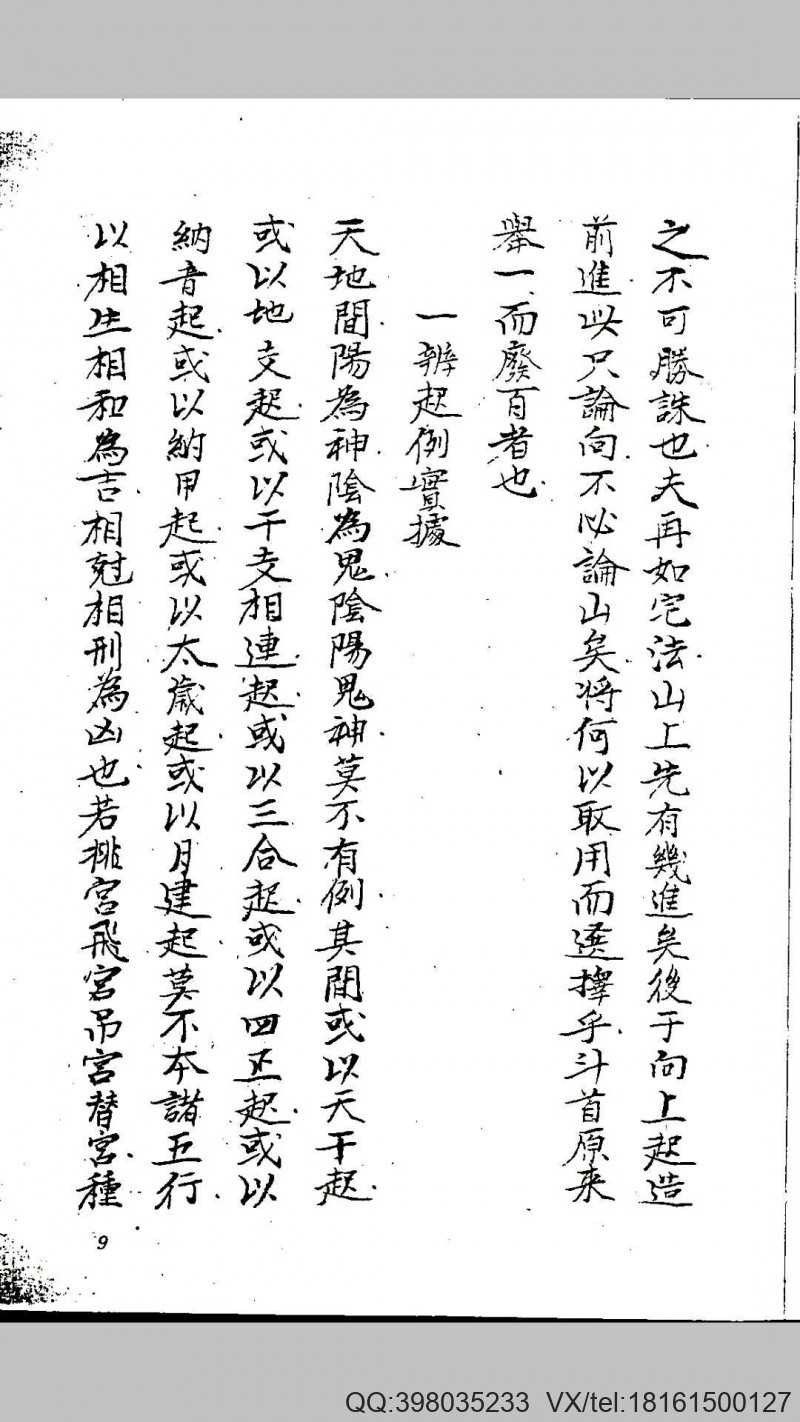 之不可勝誅也夫再如宅法山上先有幾進矣後于向上起造
前進此只論向不必論山矣將何以取用而選擇乎斗首原来
舉一而廢百者也
一辨起例實據
天地間陽為神陰為鬼陰陽鬼神莫不有例其間或以天干起
或以地支起或以干支相連起或以三合起或以四正起或以
納音起或以納甲起或以太歲起或以月建起莫不本諸五行
以相生相和為吉相尅相刑為凶也若挑宮飛宮吊宮替宮種
9
QQ:398035233 VX/tel:18161500127